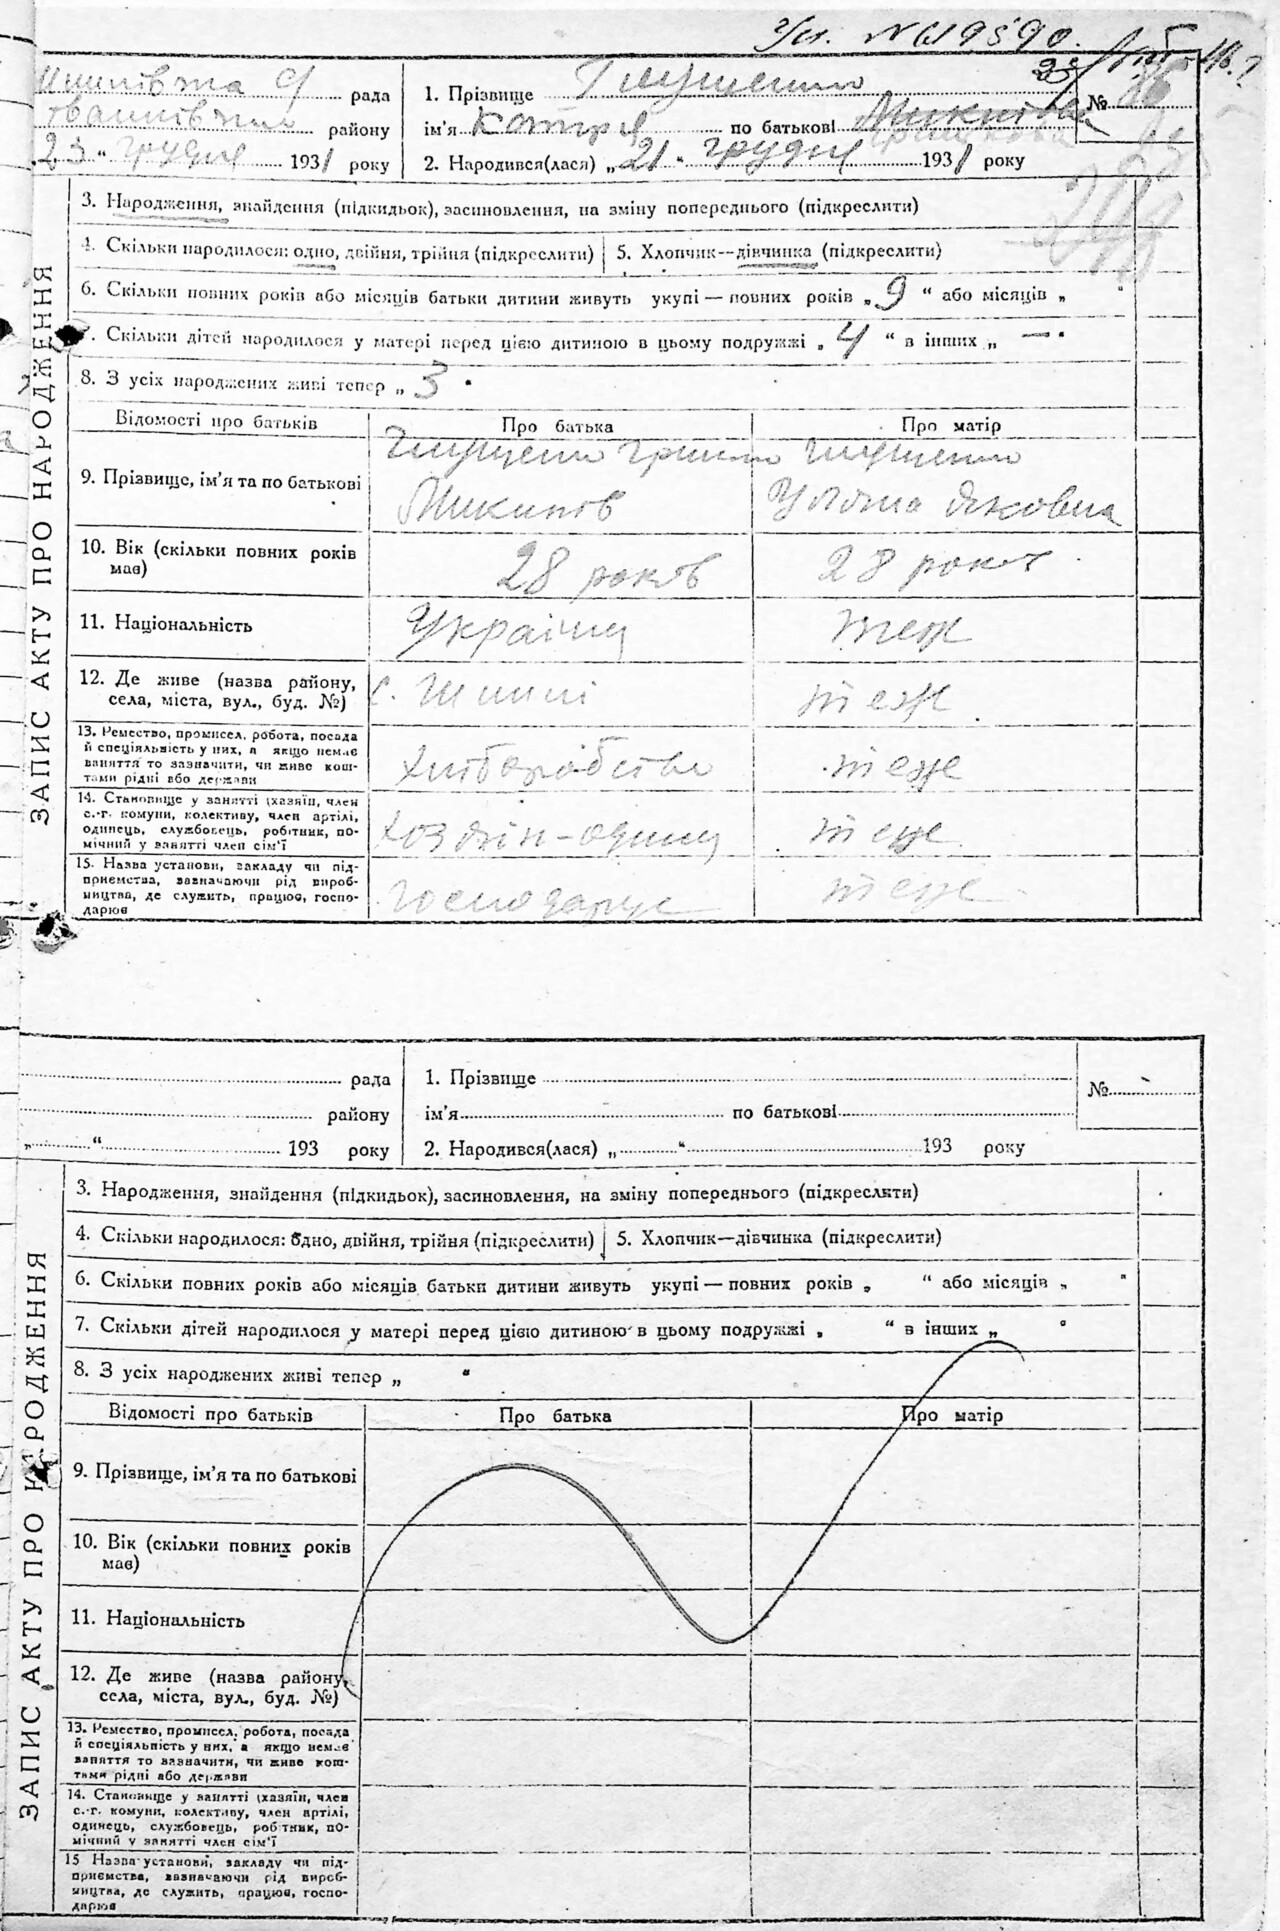 №
рада
району
23 " грудня 1931 року
1. Прізвище Глущенко
ім'я Котря по батькові Микитова
2. Народився(лася) „ 21 " грудня 1931 року
ЗАПИС АКТУ ПРО НАРОДЖЕННЯ
3. Народження, знайдення (підкидьок), засиновлення, на зміну попереднього (підкреслити)
4. Скільки народилося: одно, двійня, трійня (підкреслити)
5. Хлопчик—дівчинка (підкреслити)
6. Скільки повних років або місяців батьки дитини живуть укупі — повних років „ 9 " або місяців „ "
7. Скільки дітей народилося у матері перед цією дитиною в цьому подружжі „ 4 " в інших „ — "
8. З усіх народжених живі тепер „ 3 "
Відомості про батьків
Про батька
Про матір
9. Прізвище, ім'я та по батькові
Глущенко
Глущенко
Уляна Яковна
10. Вік (скільки повних років
має)
28 років
28 років
11. Національність
Українц
теж
12. Де живе (назва району,
села, міста, вул., буд. №)
с.
теж
13. Ремество, промисел, робота, посада
й спеціяльність у них, а якщо немає
заняття то зазначити, чи живе кош-
тами рідні або держави
Хліборобство
теж
14. Становище у занятті (хазяїн, член
с.-г. комуни, колективу, член артілі,
одинець, службовець, робітник, по-
мічний у занятті член сім'ї
хозяін-одинц
теж
15. Назва установи, закладу чи під-
приємства, зазначаючи рід вироб-
ництва, де служить, працює, госпо-
дарює
господарує
теж
рада
району
„ " 193 року
1. Прізвище
ім'я по батькові
2. Народився(лася) „ " 193 року
№
ЗАПИС АКТУ ПРО НАРОДЖЕННЯ
3. Народження, знайдення (підкидьок), засиновлення, на зміну попереднього (підкреслити)
4. Скільки народилося: одно, двійня, трійня (підкреслити)
5. Хлопчик—дівчинка (підкреслити)
6. Скільки повних років або місяців батьки дитини живуть укупі — повних років „ " або місяців „ "
7. Скільки дітей народилося у матері перед цією дитиною в цьому подружжі „ " в інших „ "
8. З усіх народжених живі тепер „ "
Відомості про батьків
Про батька
Про матір
9. Прізвище, ім'я та по батькові
10. Вік (скільки повних років
має)
11. Національність
12. Де живе (назва району,
села, міста, вул., буд. №)
13. Ремество, промисел, робота, посада
й спеціяльність у них, а якщо немає
заняття то зазначити, чи живе кош-
тами рідні або держави
14. Становище у занятті (хазяїн, член
с.-г. комуни, колективу, член артілі,
одинець, службовець, робітник, по-
мічний у занятті член сім'ї
15 Назва установи, закладу чи під-
приємства, зазначаючи рід вироб-
ництва, де служить, працює, госпо-
дарює